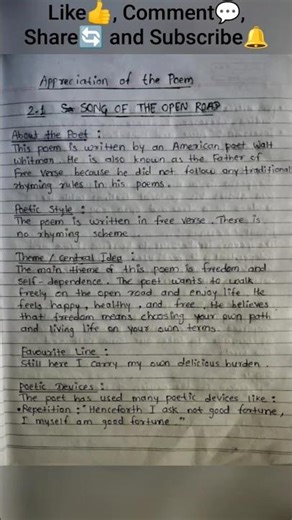 Like👍, Comment💬,
Share🔄 and Subscribe🔔
Appreciation of the Poem
2.1 SONG OF THE OPEN ROAD
About the Poet :
This poem is written by an American poet Walt
Whitman. He is also known as the Father of
Free Verse because he did not follow any traditional
rhyming rules in his poems.
Poetic Style :
The poem is written in free verse. There is
no rhyming scheme.
Theme / Central Idea :
The main theme of this poem is freedom and
self-dependence. The poet wants to walk
freely on the open road and enjoy life. He
feels happy, healthy, and free. He believes
that freedom means choosing your own path
and living life on your own terms.
Favourite Line :
Still here I carry my own delicious burden.
Poetic Devices :
The poet has used many poetic devices like :
•Repetition : "Henceforth I ask not good fortune,
I myself am good fortune."